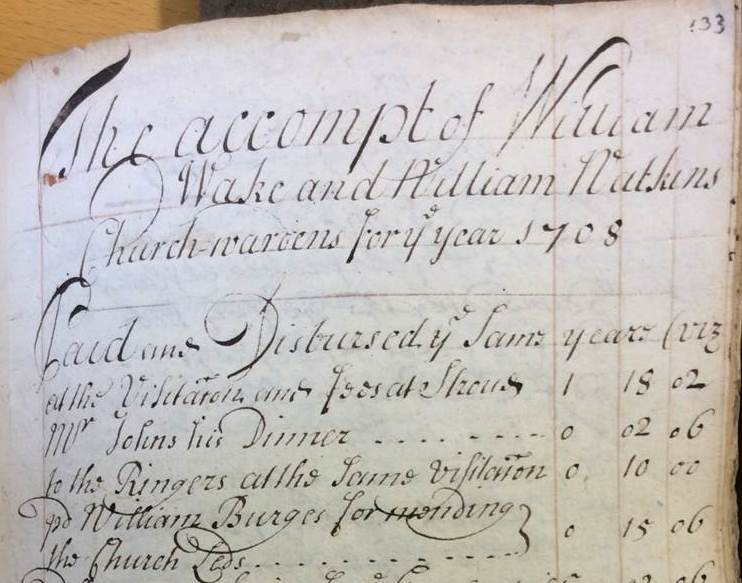 133
The accompt of William
Wake and William Watkins
Church-wardens for yͤ year 1708
Paid and Disbursed yͤ Same year (viz
at the Visitation and fees at Stroud 1 18 02
Mr Johns his Dinner - - - - - - - - - 0 02 06
to the Ringers at the Same Visitation 0 10 00
pd William Burges for mending
the Church Leds - - - - - - - - - } 0 15 06